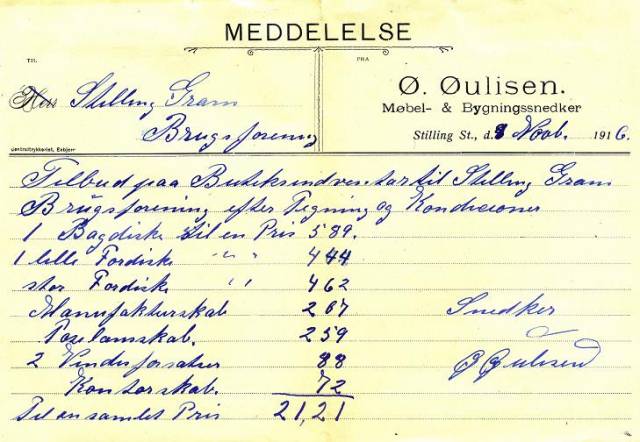 MEDDELELSE
TIL
FRA
Herr Stilling Gram
Brugsforening
Ø. Øulisen.
Møbel- & Bygningssnedker
Stilling St., d. 8 Novb. 1916.
Centraltrykkeriet, Esbjerg
Tilbud paa Butiksindventar til Stilling Gram
Brugsforening efter Tegning og Kondicioner
1 Bagdiske til en Pris 589.
1 lille Fordiske " " 444
stor Fordiske " 462
Manufakturskab 207
Poselamskab. 259
2 Vindesforsatser 88
Kontorskab. 72
Til en samlet Pris 21,21
Snedker
Ø Øulisen